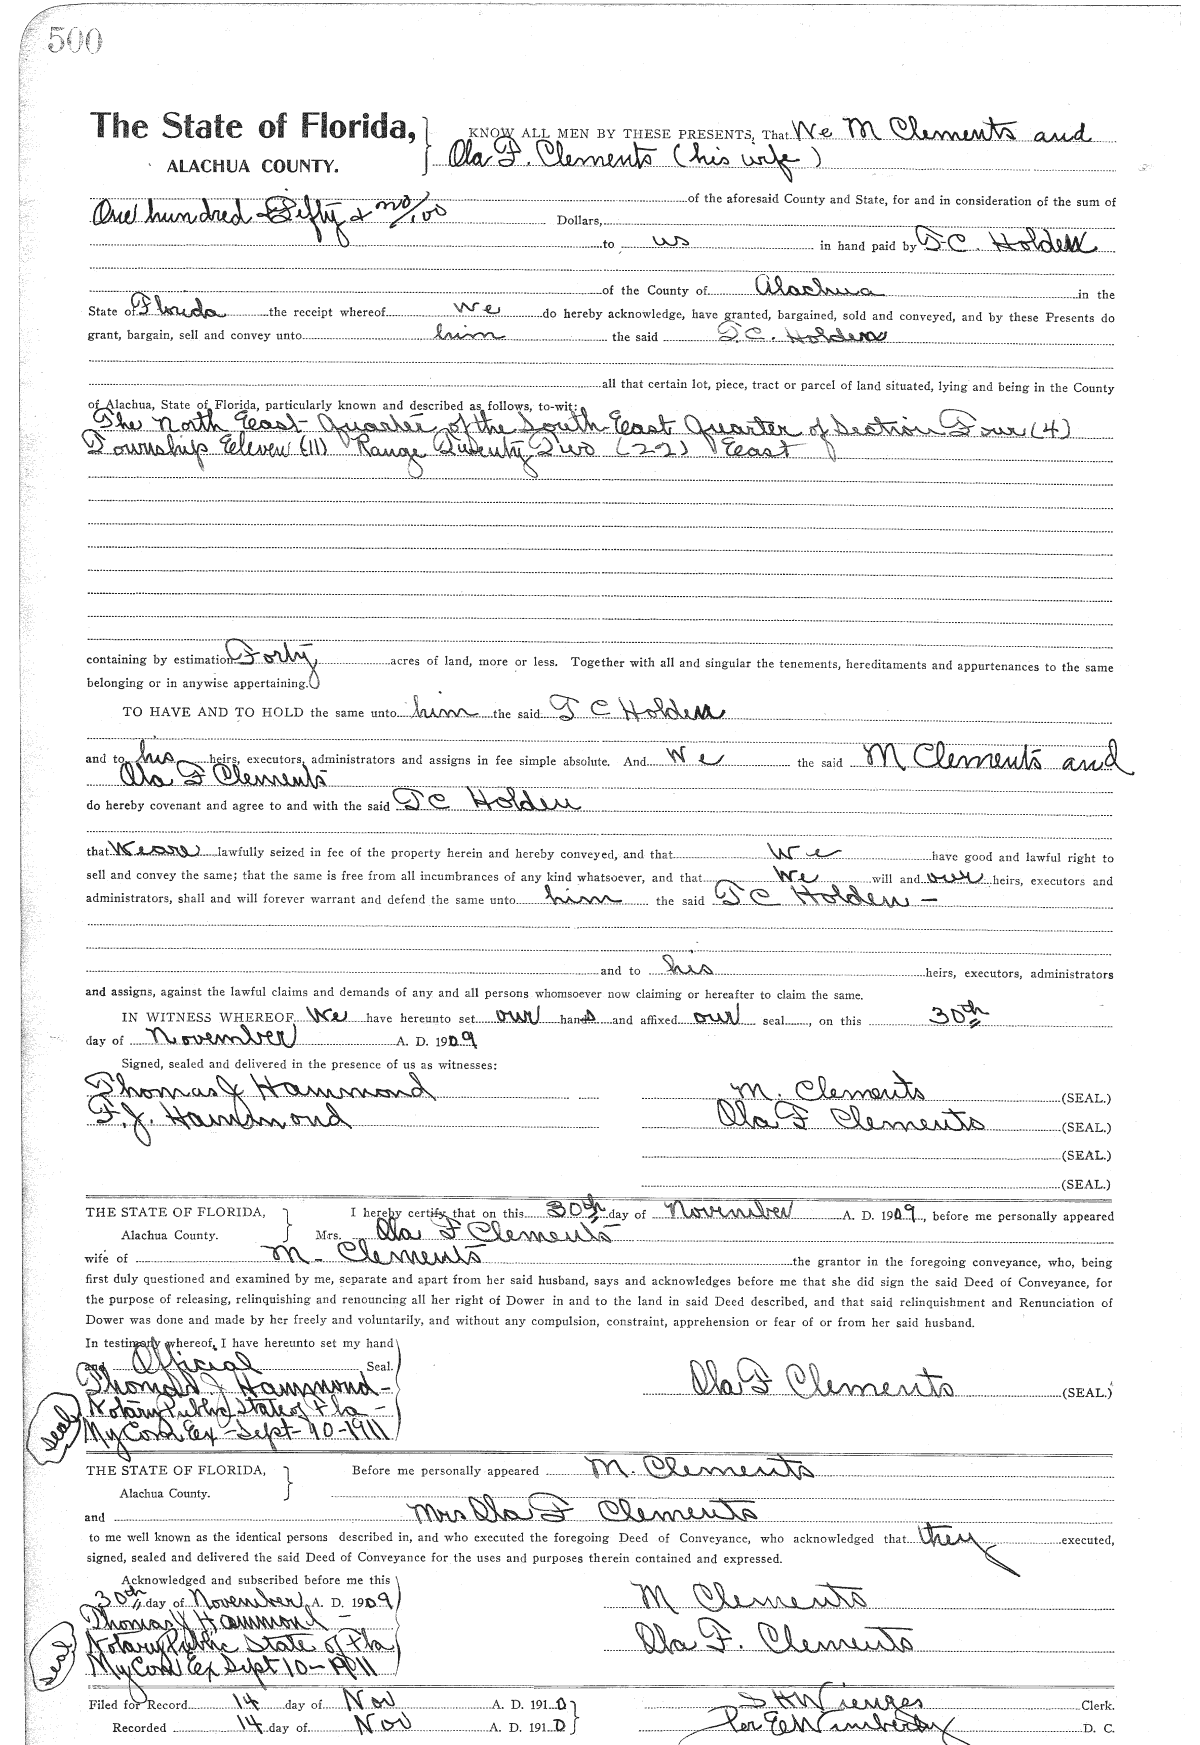 500
The State of Florida, KNOW ALL MEN BY THESE PRESENTS, That We M Clements and
ALACHUA COUNTY. Ola F. Clements (his wife)
of the aforesaid County and State, for and in consideration of the sum of
One hundred & Fifty & no/100 Dollars,
to us in hand paid by T. C. Holden
of the County of Alachua in the
State of Florida the receipt whereof we do hereby acknowledge, have granted, bargained, sold and conveyed, and by these Presents do
grant, bargain, sell and convey unto him the said T. C. Holden
all that certain lot, piece, tract or parcel of land situated, lying and being in the County
of Alachua, State of Florida, particularly known and described as follows, to-wit:
The North East Quarter of the South East Quarter of Section Four (4)
Township Eleven (11) Range Twenty Two (22) East
containing by estimation Forty acres of land, more or less. Together with all and singular the tenements, hereditaments and appurtenances to the same
belonging or in anywise appertaining.
TO HAVE AND TO HOLD the same unto him the said T C Holden
and to his heirs, executors, administrators and assigns in fee simple absolute. And We the said M Clements and
Ola F Clements
do hereby covenant and agree to and with the said T C Holden
that We are lawfully seized in fee of the property herein and hereby conveyed, and that We have good and lawful right to
sell and convey the same; that the same is free from all incumbrances of any kind whatsoever, and that We will and our heirs, executors and
administrators, shall and will forever warrant and defend the same unto him the said T C Holden –
and to his heirs, executors, administrators
and assigns, against the lawful claims and demands of any and all persons whomsoever now claiming or hereafter to claim the same.
IN WITNESS WHEREOF We have hereunto set our hands and affixed our seal, on this 30th
day of November A. D. 1909
Signed, sealed and delivered in the presence of us as witnesses:
Thomas J Hammond M. Clements (SEAL.)
F. J. Hammond Ola F Clements (SEAL.)
(SEAL.)
(SEAL.)
THE STATE OF FLORIDA, I hereby certify that on this 30th day of November A. D. 1909, before me personally appeared
Alachua County. Mrs. Ola F Clements
wife of M. Clements the grantor in the foregoing conveyance, who, being
first duly questioned and examined by me, separate and apart from her said husband, says and acknowledges before me that she did sign the said Deed of Conveyance, for
the purpose of releasing, relinquishing and renouncing all her right of Dower in and to the land in said Deed described, and that said relinquishment and Renunciation of
Dower was done and made by her freely and voluntarily, and without any compulsion, constraint, apprehension or fear of or from her said husband.
In testimony whereof, I have hereunto set my hand
and Official Seal.
Thomas J Hammond – Ola F Clements (SEAL.)
Notary Public State of Fla –
seal My Com Ex – Sept – 10 – 1911
THE STATE OF FLORIDA, Before me personally appeared M. Clements
Alachua County.
and Mrs Ola F Clements
to me well known as the identical persons described in, and who executed the foregoing Deed of Conveyance, who acknowledged that they executed,
signed, sealed and delivered the said Deed of Conveyance for the uses and purposes therein contained and expressed.
Acknowledged and subscribed before me this
30th day of November A. D. 1909 M Clements
Thomas J Hammond –
Notary Public State of Fla Ola F. Clements
seal My Com Ex Sept 10 – 1911
Filed for Record 14 day of Nov A. D. 1910 S H Wienges Clerk.
Recorded 14 day of Nov A. D. 1910 Per E C Wimberly D. C.